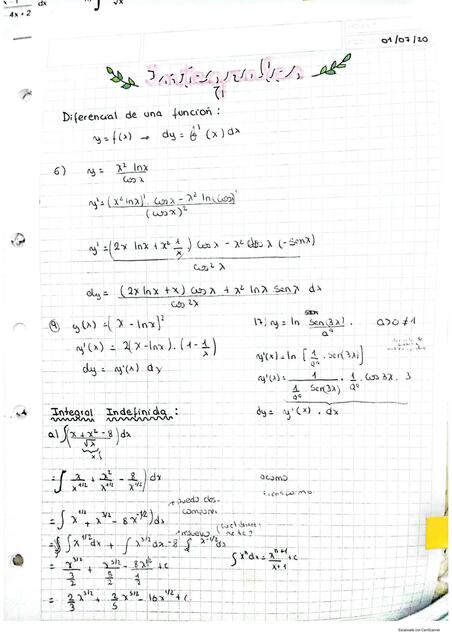 4x+2
dx
01/07/20
Diferencial de una función:
y = f(x) → dy = f'(x) dx
6) y = x² lnx / cosx
y' = (x² lnx)' · cosx - x² ln(cosx)' / (cosx)²
y' = (2x lnx + x² 1/x) cosx - x² (-senx) / cos²x
dy = (2x lnx + x) cosx + x² lnx senx / cos²x dx
9) y(x) = (x - lnx)²
y'(x) = 2(x - lnx) · (1 - 1/x)
dy = y'(x) dx
17) y = ln sen(3x) / a a>0 ≠ 1
y'(x) = ln [1/a · sen(3x)]
y'(x) = 1 / 1/a sen(3x) · 1/a · cos3x · 3
dy = y'(x) · dx
Integral Indefinida:
a) ∫(x + x² - 8 / √x) dx
= ∫ (x/x^1/2 + x²/x^1/2 - 8/x^1/2) dx
= ∫ x^1/2 + x^3/2 - 8x^-1/2) dx
puedo des-
= ∫ x^1/2 dx + ∫ x^3/2 dx - 8 ∫ x^-1/2 dx
∫ x^n dx = x^n+1 / x+1 + c
= x^3/2 / 3/2 + x^5/2 / 5/2 - 8x^1/2 / 1/2 + c
= 2/3 x^3/2 + 2/5 x^5/2 - 16x^1/2 + c
Escaneado con CamScanner